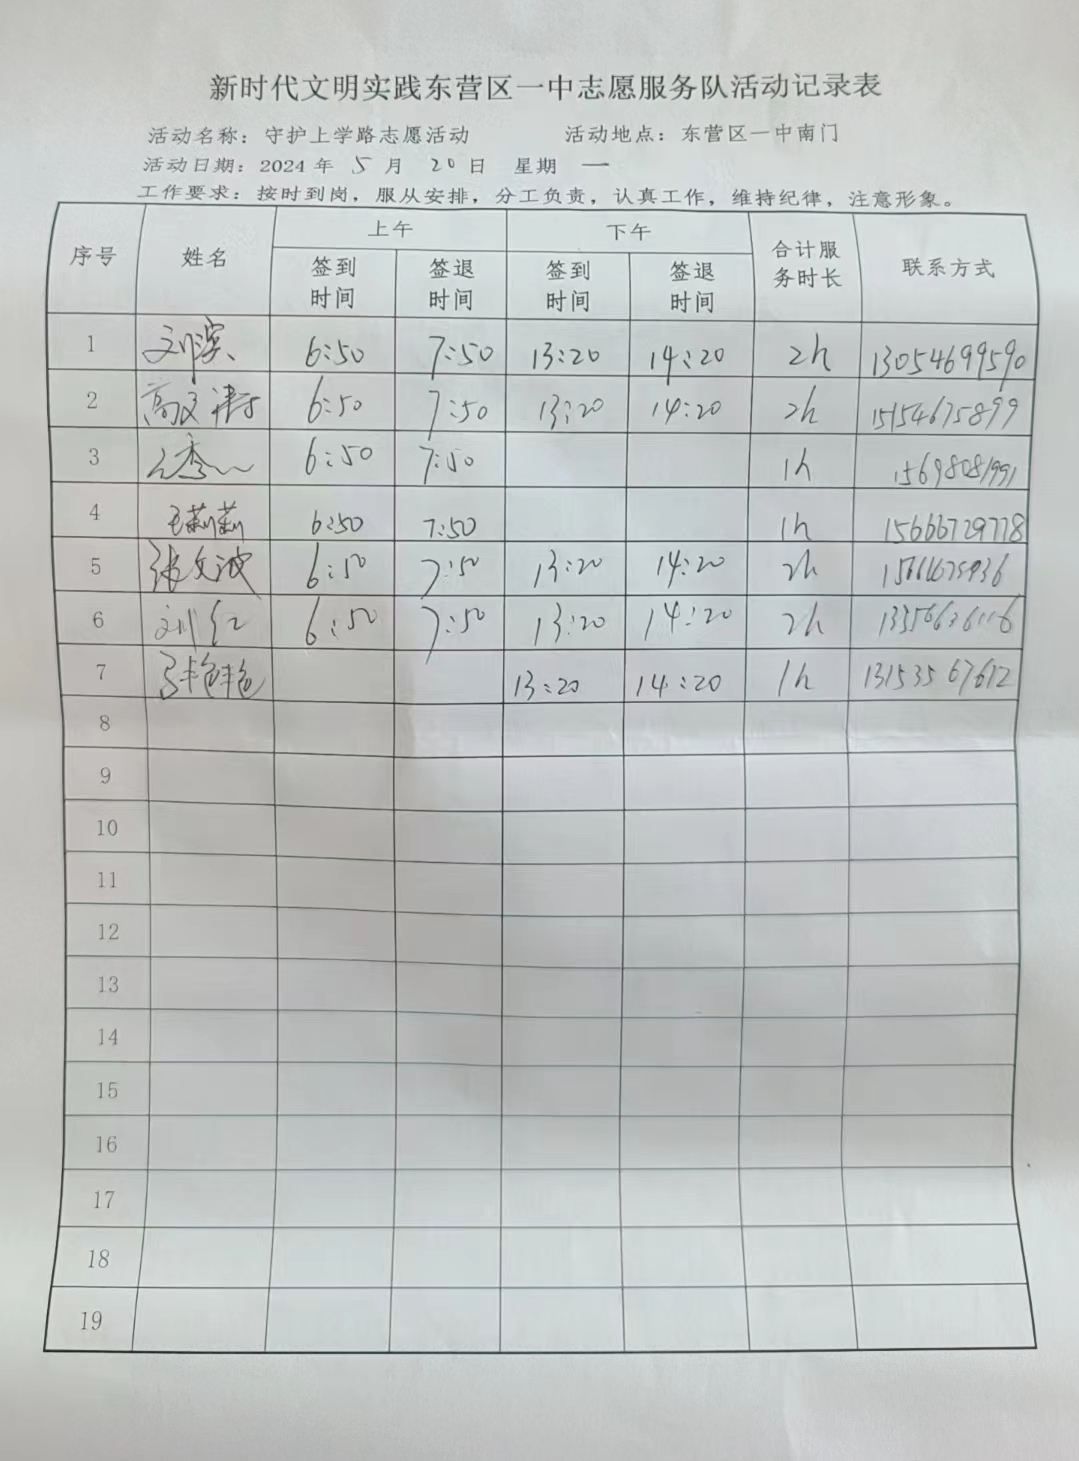 新时代文明实践东营区一中志愿服务队活动记录表
活动名称：守护上学路志愿活动 活动地点：东营区一中南门
活动日期：2024 年 5 月 20 日 星期 一
工作要求：按时到岗，服从安排，分工负责，认真工作，维持纪律，注意形象。
序号 姓名 上午 下午 合计服务时长 联系方式
签到时间 签退时间 签到时间 签退时间
1 刘滨 6:50 7:50 13:20 14:20 2h 13054699590
2 高文 6:50 7:50 13:20 14:20 2h 15154675899
3 6:50 7:50 1h 15698081991
4 王莉莉 6:50 7:50 1h 15666729778
5 张文波 6:50 7:50 13:20 14:20 2h
6 刘红 6:50 7:50 13:20 14:20 2h
7 13:20 14:20 1h 13153567612
8
9
10
11
12
13
14
15
16
17
18
19